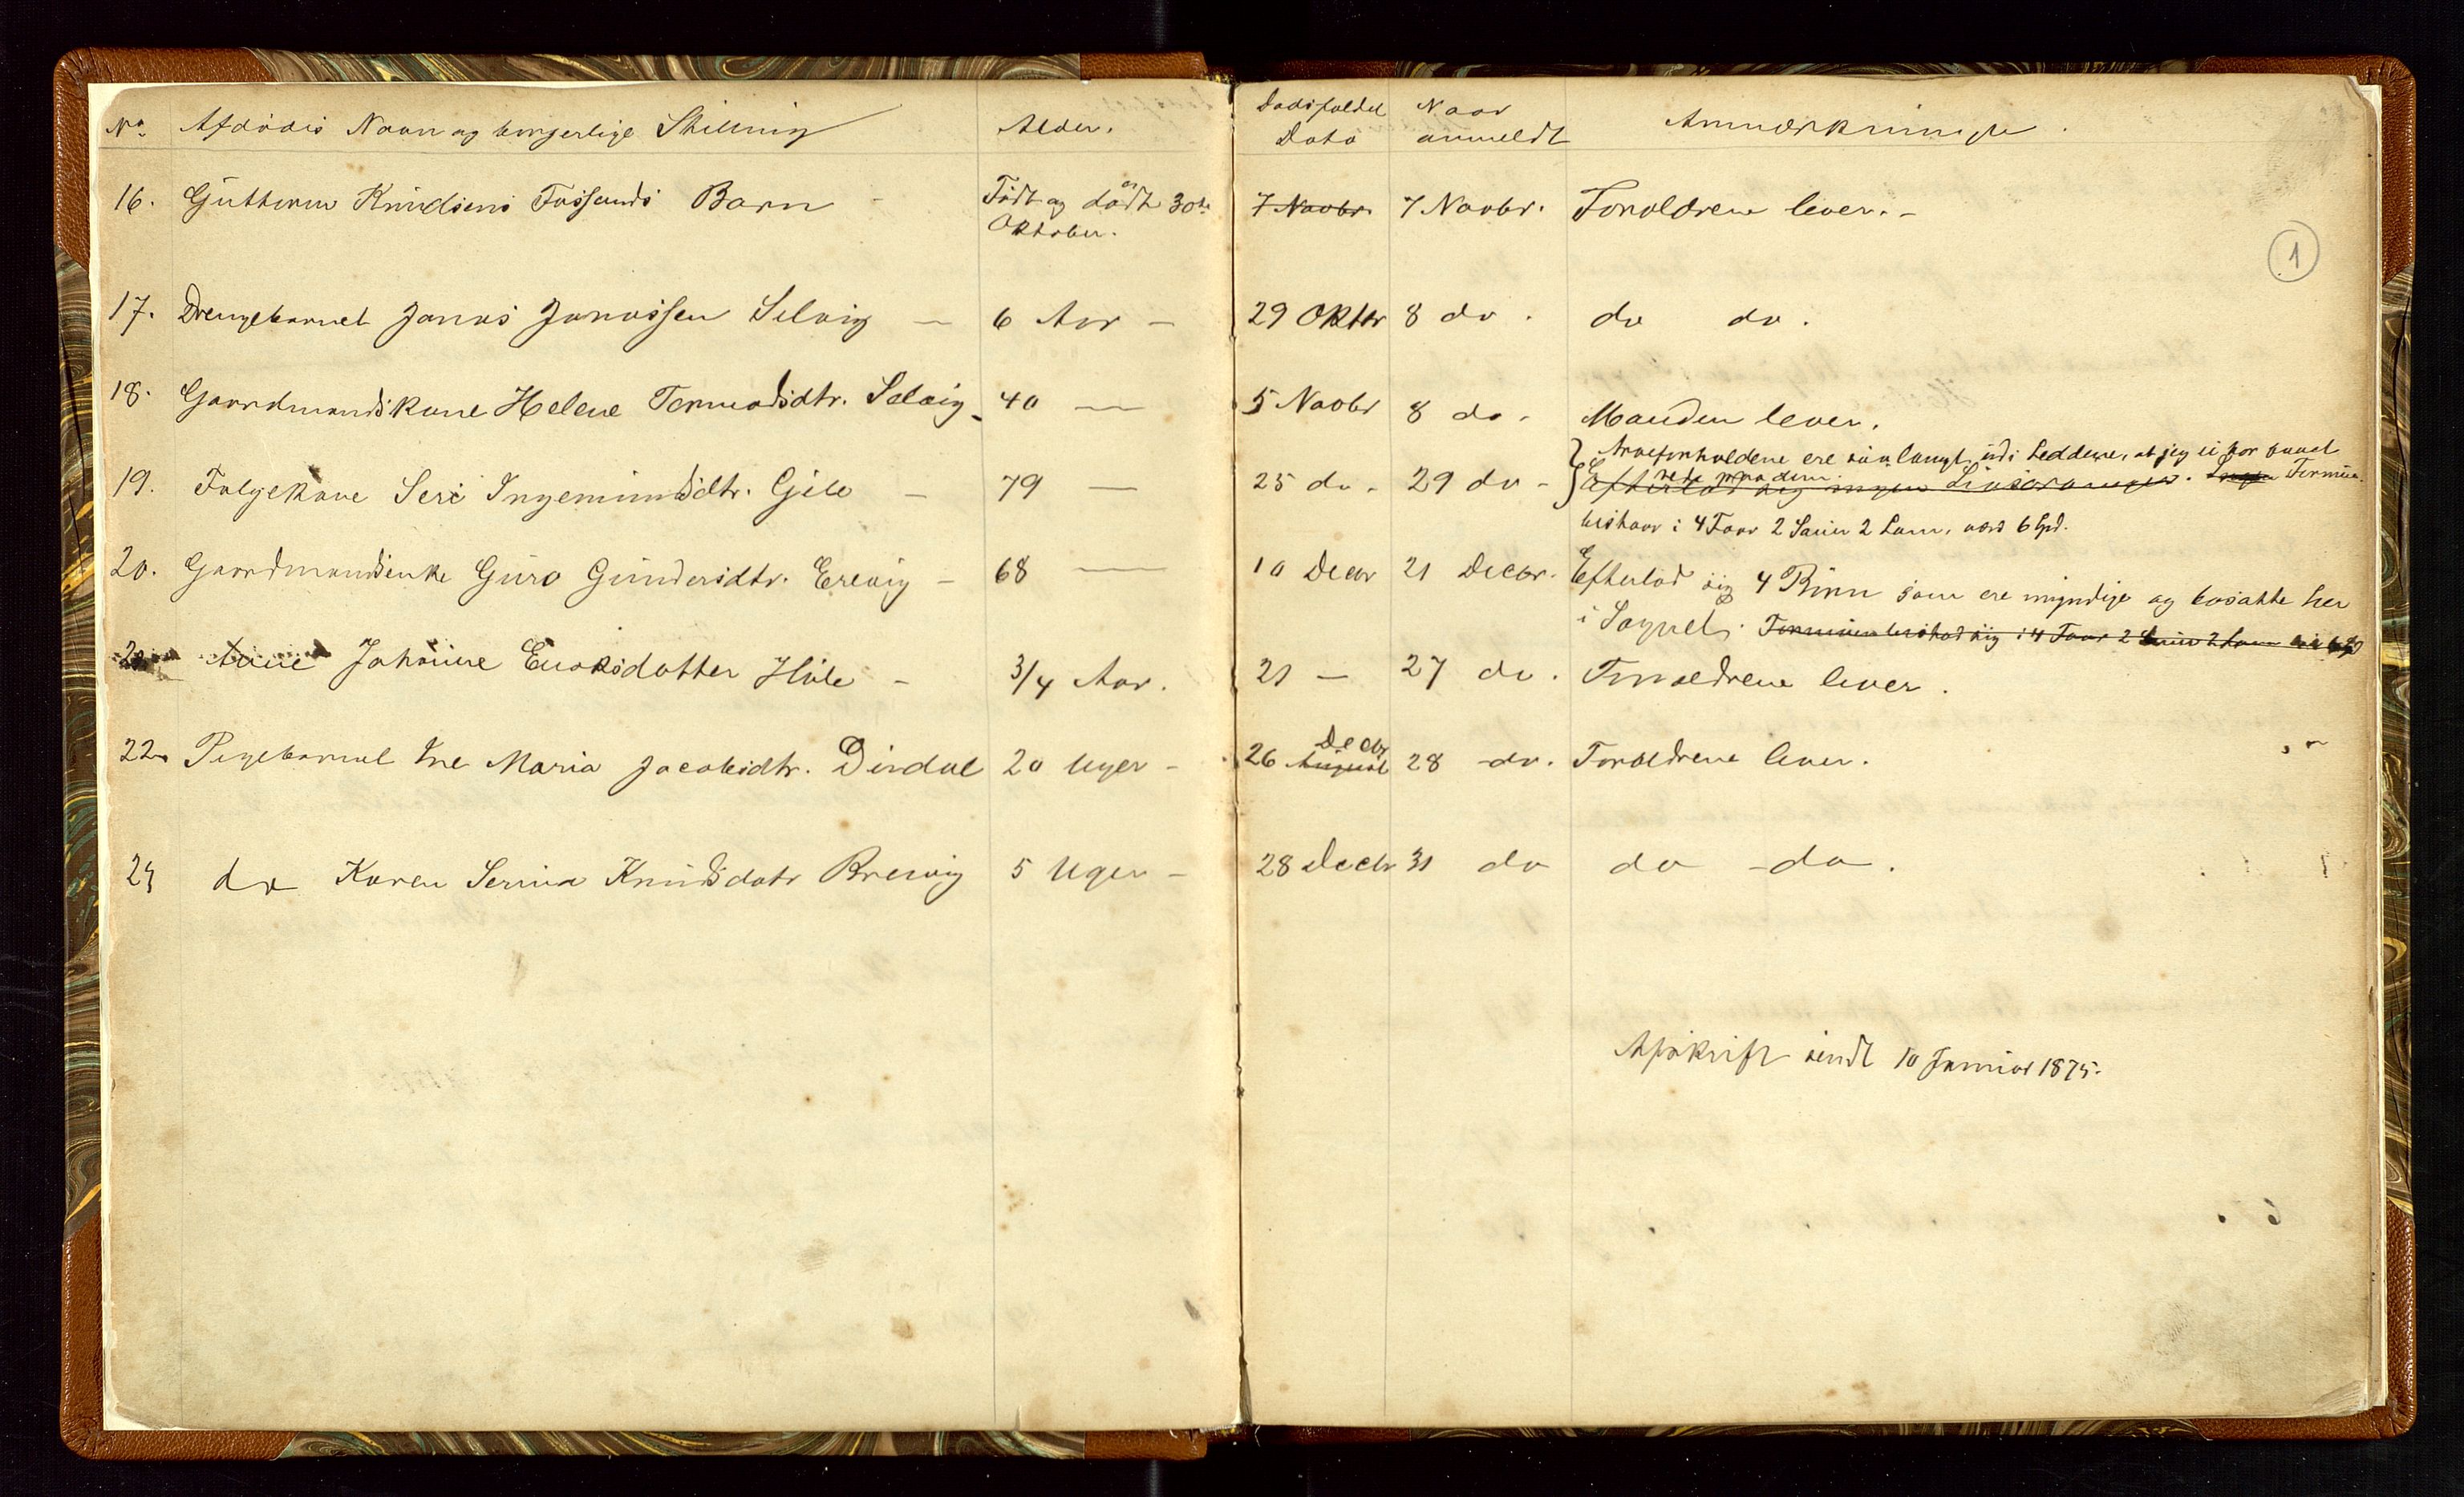 No. Afdødes Navn og borgerlige Stilling Alder. Dødsfaldet Dato Naar anmeldt Anmærkninger.
1
16. Guttorm Knudsens Fossands Barn - Født og død 30te Oktober. 7 Novbr. 7 Novbr. Forældrene lever. -
17. Drengebarnet Jonas Jonassen Selvig - 6 Aar - 29 Oktbr 8 do. do do.
18. Gaardmandskone Helene Tormodsdtr. Selvig - 40 — 5 Novbr 8 do. Manden lever.
19. Følgekone Seri Ingemundsdtr. Gilo - 79 — 25 do. 29 do - Arveforholdene ere saa langt ud i Leddene, at jeg ei har kunnet
rede paa dem.
Efterlod sig ingen Livsarvinger. Ingen Formuen
bestaar i 4 Faar 2 Sauer 2 Lam, værd 6 Spd.
20. Gaardmandsenke Guro Gundersdtr. Erevig - 68 — 10 Decbr 21 Decbr. Efterlod sig 4 Børn som ere myndige og bosatte her
i Sognet. Formuen bestod sig i 4 Faar 2 Sauer 2 Lam
21 Ane Johanne Enoksdatter Hole - 3/4 Aar. 21 — 27 do. Forældrene lever.
22. Pigebarnet Ane Maria Jacobsdtr. Dirdal 20 Uger - 26 August Decbr 28 do. Forældrene lever.
23 do Karen Serina Knudsdatr Breivig 5 Uger - 28 Decbr 31 do do do.
Afskrift sendt 10 Januar 1875.